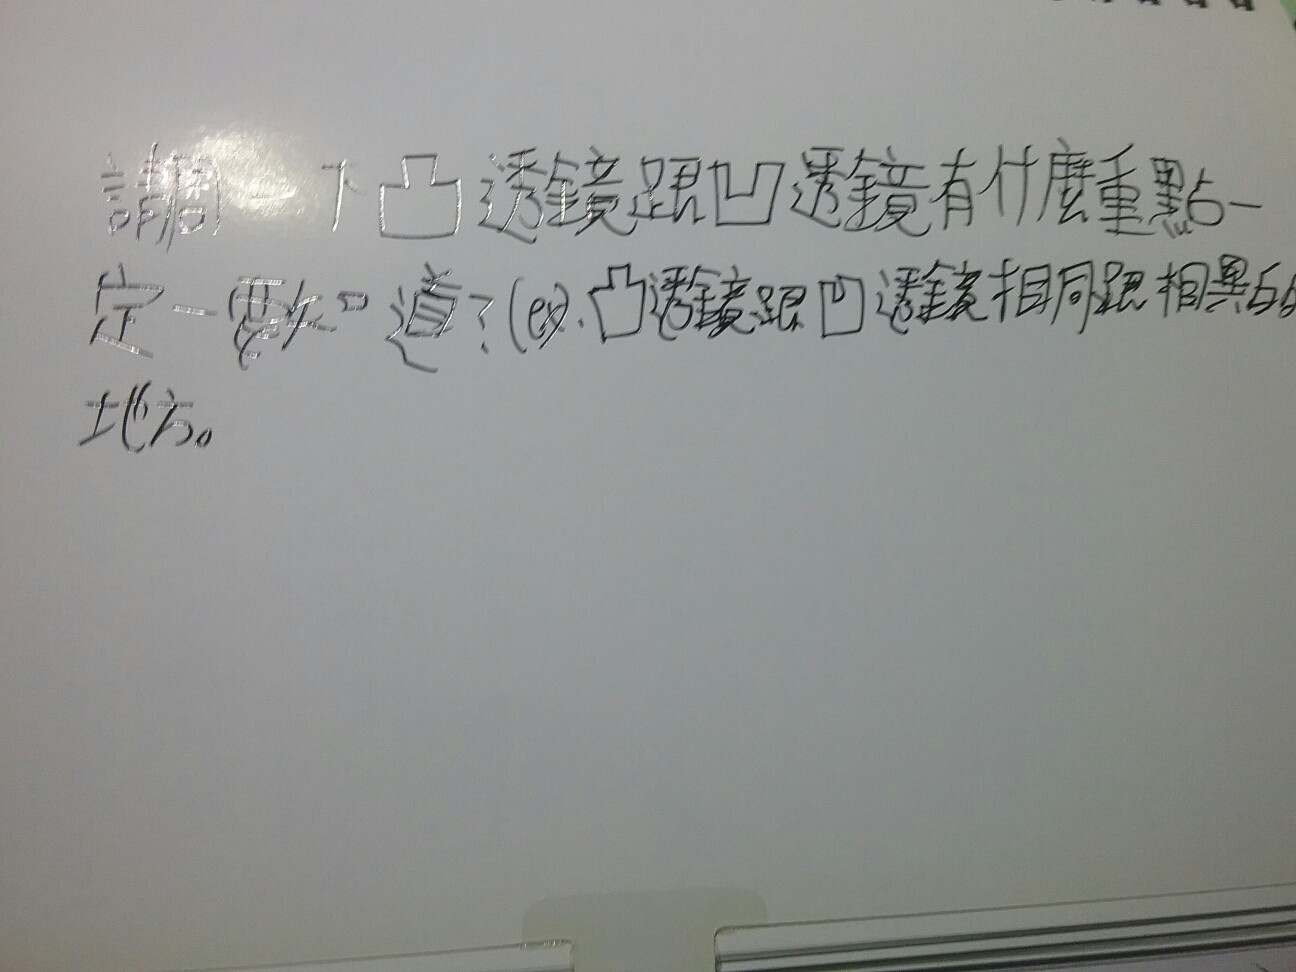 請問一下凸透鏡跟凹透鏡有什麼重點一
定一要知道?(ex.凸透鏡跟凹透鏡相同跟相異的
地方。